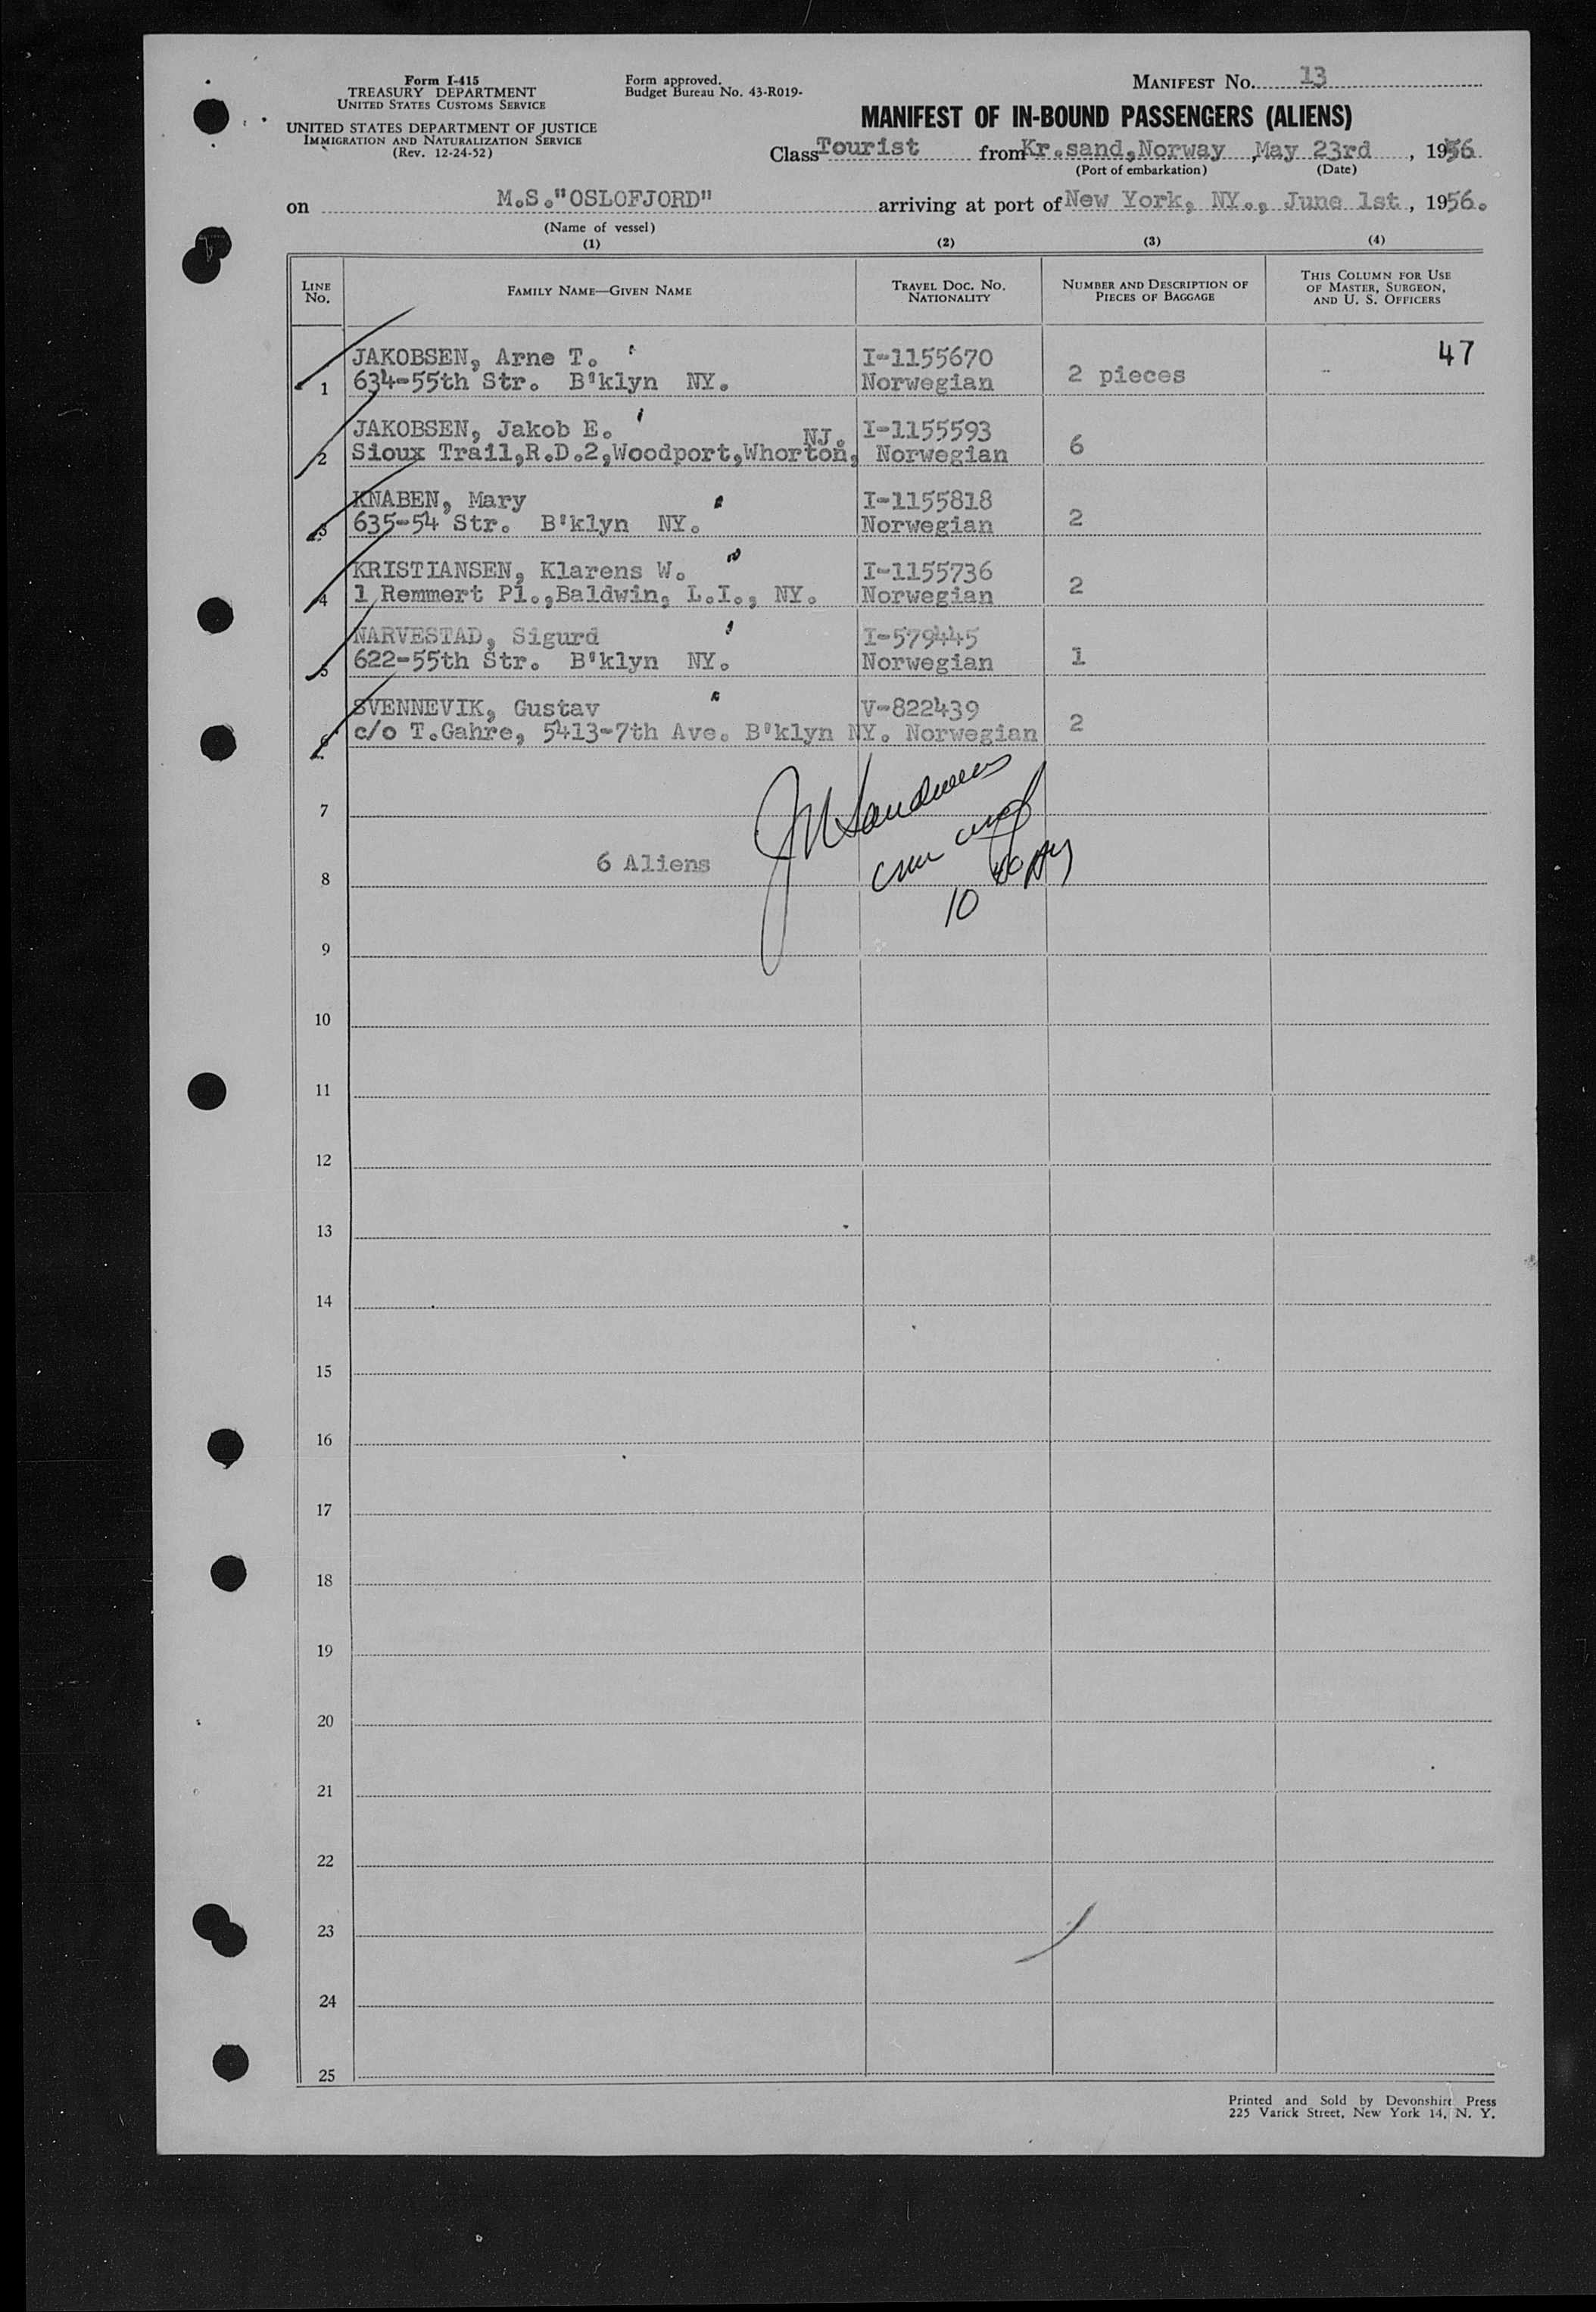 Form I-415
TREASURY DEPARTMENT
UNITED STATES CUSTOMS SERVICE
UNITED STATES DEPARTMENT OF JUSTICE
IMMIGRATION AND NATURALIZATION SERVICE
(Rev. 12-24-52)
Form approved.
Budget Bureau No. 43-R019-
MANIFEST NO. 13
MANIFEST OF IN-BOUND PASSENGERS (ALIENS)
Class Tourist from Kr.sand,Norway ,May 23rd , 1956
(Port of embarkation) (Date)
on M.S."OSLOFJORD" arriving at port of New York, NY., June 1st , 1956.
(Name of vessel)
(1) (2) (3) (4)
LINE NO.
FAMILY NAME—GIVEN NAME
TRAVEL DOC. NO.
NATIONALITY
NUMBER AND DESCRIPTION OF
PIECES OF BAGGAGE
THIS COLUMN FOR USE
OF MASTER, SURGEON,
AND U. S. OFFICERS
JAKOBSEN, Arne T. I-1155670 47
1 634-55th Str. B'klyn NY. Norwegian 2 pieces
JAKOBSEN, Jakob E. NJ. I-1155593
2 Sioux Trail,R.D.2,Woodport,Whorton, Norwegian 6
KNABEN, Mary I-1155818
3 635-54 Str. B'klyn NY. Norwegian 2
KRISTIANSEN, Klarens W. I-1155736
4 1 Remmert Pl.,Baldwin, L.I., NY. Norwegian 2
NARVESTAD, Sigurd I-579445
5 622-55th Str. B'klyn NY. Norwegian 1
SVENNEVIK, Gustav V-822439
6 c/o T.Gahre, 5413-7th Ave. B'klyn NY. Norwegian 2
7
6 Aliens
8
10
9
10
11
12
13
14
15
16
17
18
19
20
21
22
23
24
25
Printed and Sold by Devonshire Press
225 Varick Street, New York 14, N. Y.